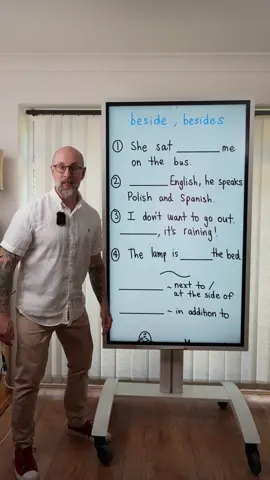 beside , besides
① She sat ________ me
on the bus.
② ________ English, he speaks
Polish and Spanish.
③ I don't want to go out.
________, it's raining!
④ The lamp is ______ the bed
________ - next to /
at the side of
________ - in addition to